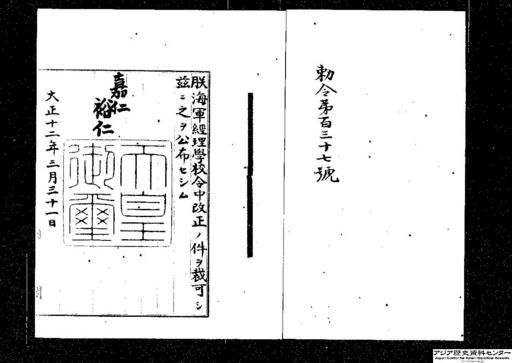 勅令第百三十七號
朕海軍經理學校令中改正ノ件ヲ裁可シ
茲ニ之ヲ公布セシム
嘉仁
裕仁
天皇
御璽
大正十二年三月三十一日
アジア歴史資料センター
Japan Center for Asian Historical Records